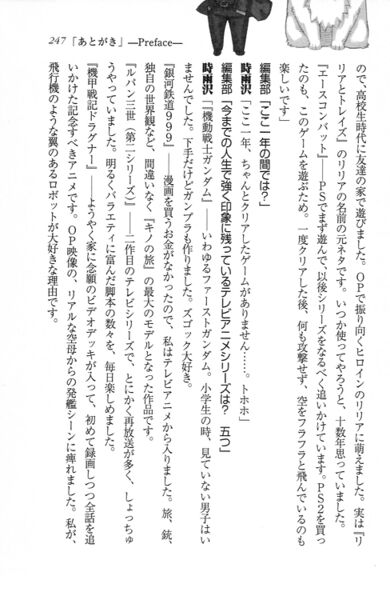 247 「あとがき」 —Preface—
ので、高校生時代に友達の家で遊びました。OPで振り向くヒロインのリリアに萌えました。実は『リ
リアとトレイズ』のリリアの名前の元ネタです。いつか使ってやろうと、十数年思っていました。
『エースコンバット』——PSでまず遊んで、以後シリーズをなるべく追いかけています。PS2を買っ
たのも、このゲームを遊ぶため。一度クリアした後、何も攻撃せず、空をフラフラと飛んでいるのも
楽しいです」
編集部「ここ一年の間では?」
時雨沢「ここ一年、ちゃんとクリアしたゲームがありません……。トホホ」
編集部「今までの人生で強く印象に残っているテレビアニメシリーズは? 五つ」
時雨沢「『機動戦士ガンダム』——いわゆるファーストガンダム。小学生の時、見ていない男子はい
ませんでした。下手だけどガンプラも作りました。ズゴック大好き。
『銀河鉄道999』——漫画を買うお金がなかったので、私はテレビアニメから入りました。旅、銃、
独自の世界観など、間違いなく『キノの旅』の最大のモデルとなった作品です。
『ルパン三世(第二シリーズ)』——二作目のテレビシリーズで、とにかく再放送が多く、しょっちゅ
うやっていました。明るくバラエティに富んだ脚本の数々を、毎日楽しめました。
『機甲戦記ドラグナー』——ようやく家に念願のビデオデッキが入って、初めて録画しつつ全話を追
いかけた記念すべきアニメです。OP映像の、リアルな空母からの発艦シーンに痺れました。私が、
飛行機のような翼のあるロボットが大好きな理由です。